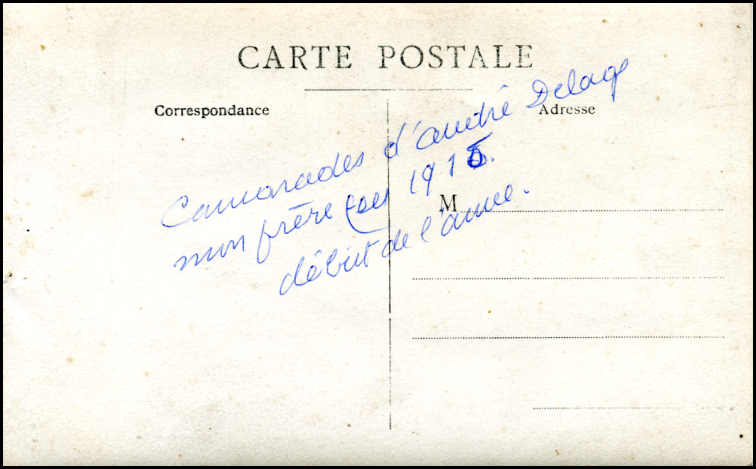 CARTE POSTALE
Correspondance
Adresse
Camarades d'andré Delage
mon frère
début de l'année.
M